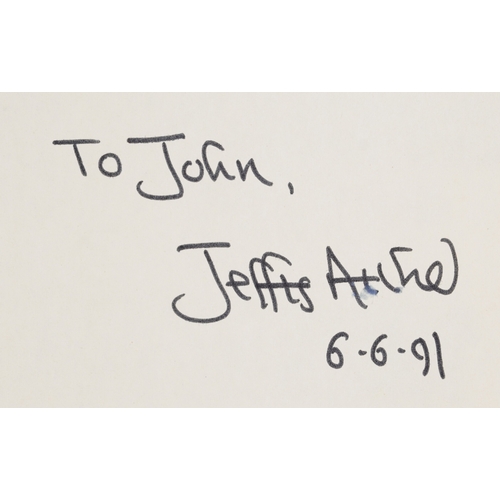 To John,
Jeffrey Archer
6-6-91